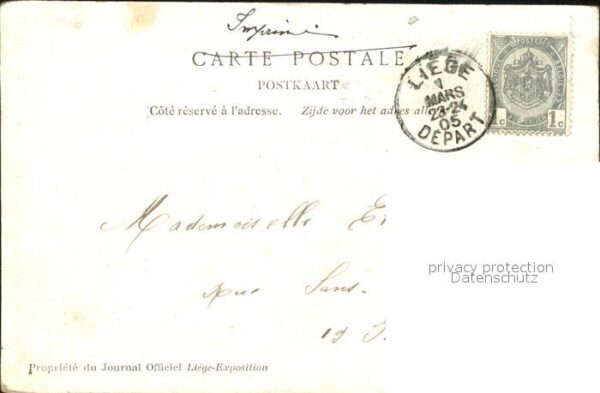 Imprimé
CARTE POSTALE
POSTKAART
Côté réservé à l'adresse. Zijde voor het adres
LIEGE
MARS
23-24
05
DÉPART
1c 1c
Mademoiselle E
Rue Sans-
19
privacy protection
Datenschutz
Propriété du Journal Officiel Liége-Exposition